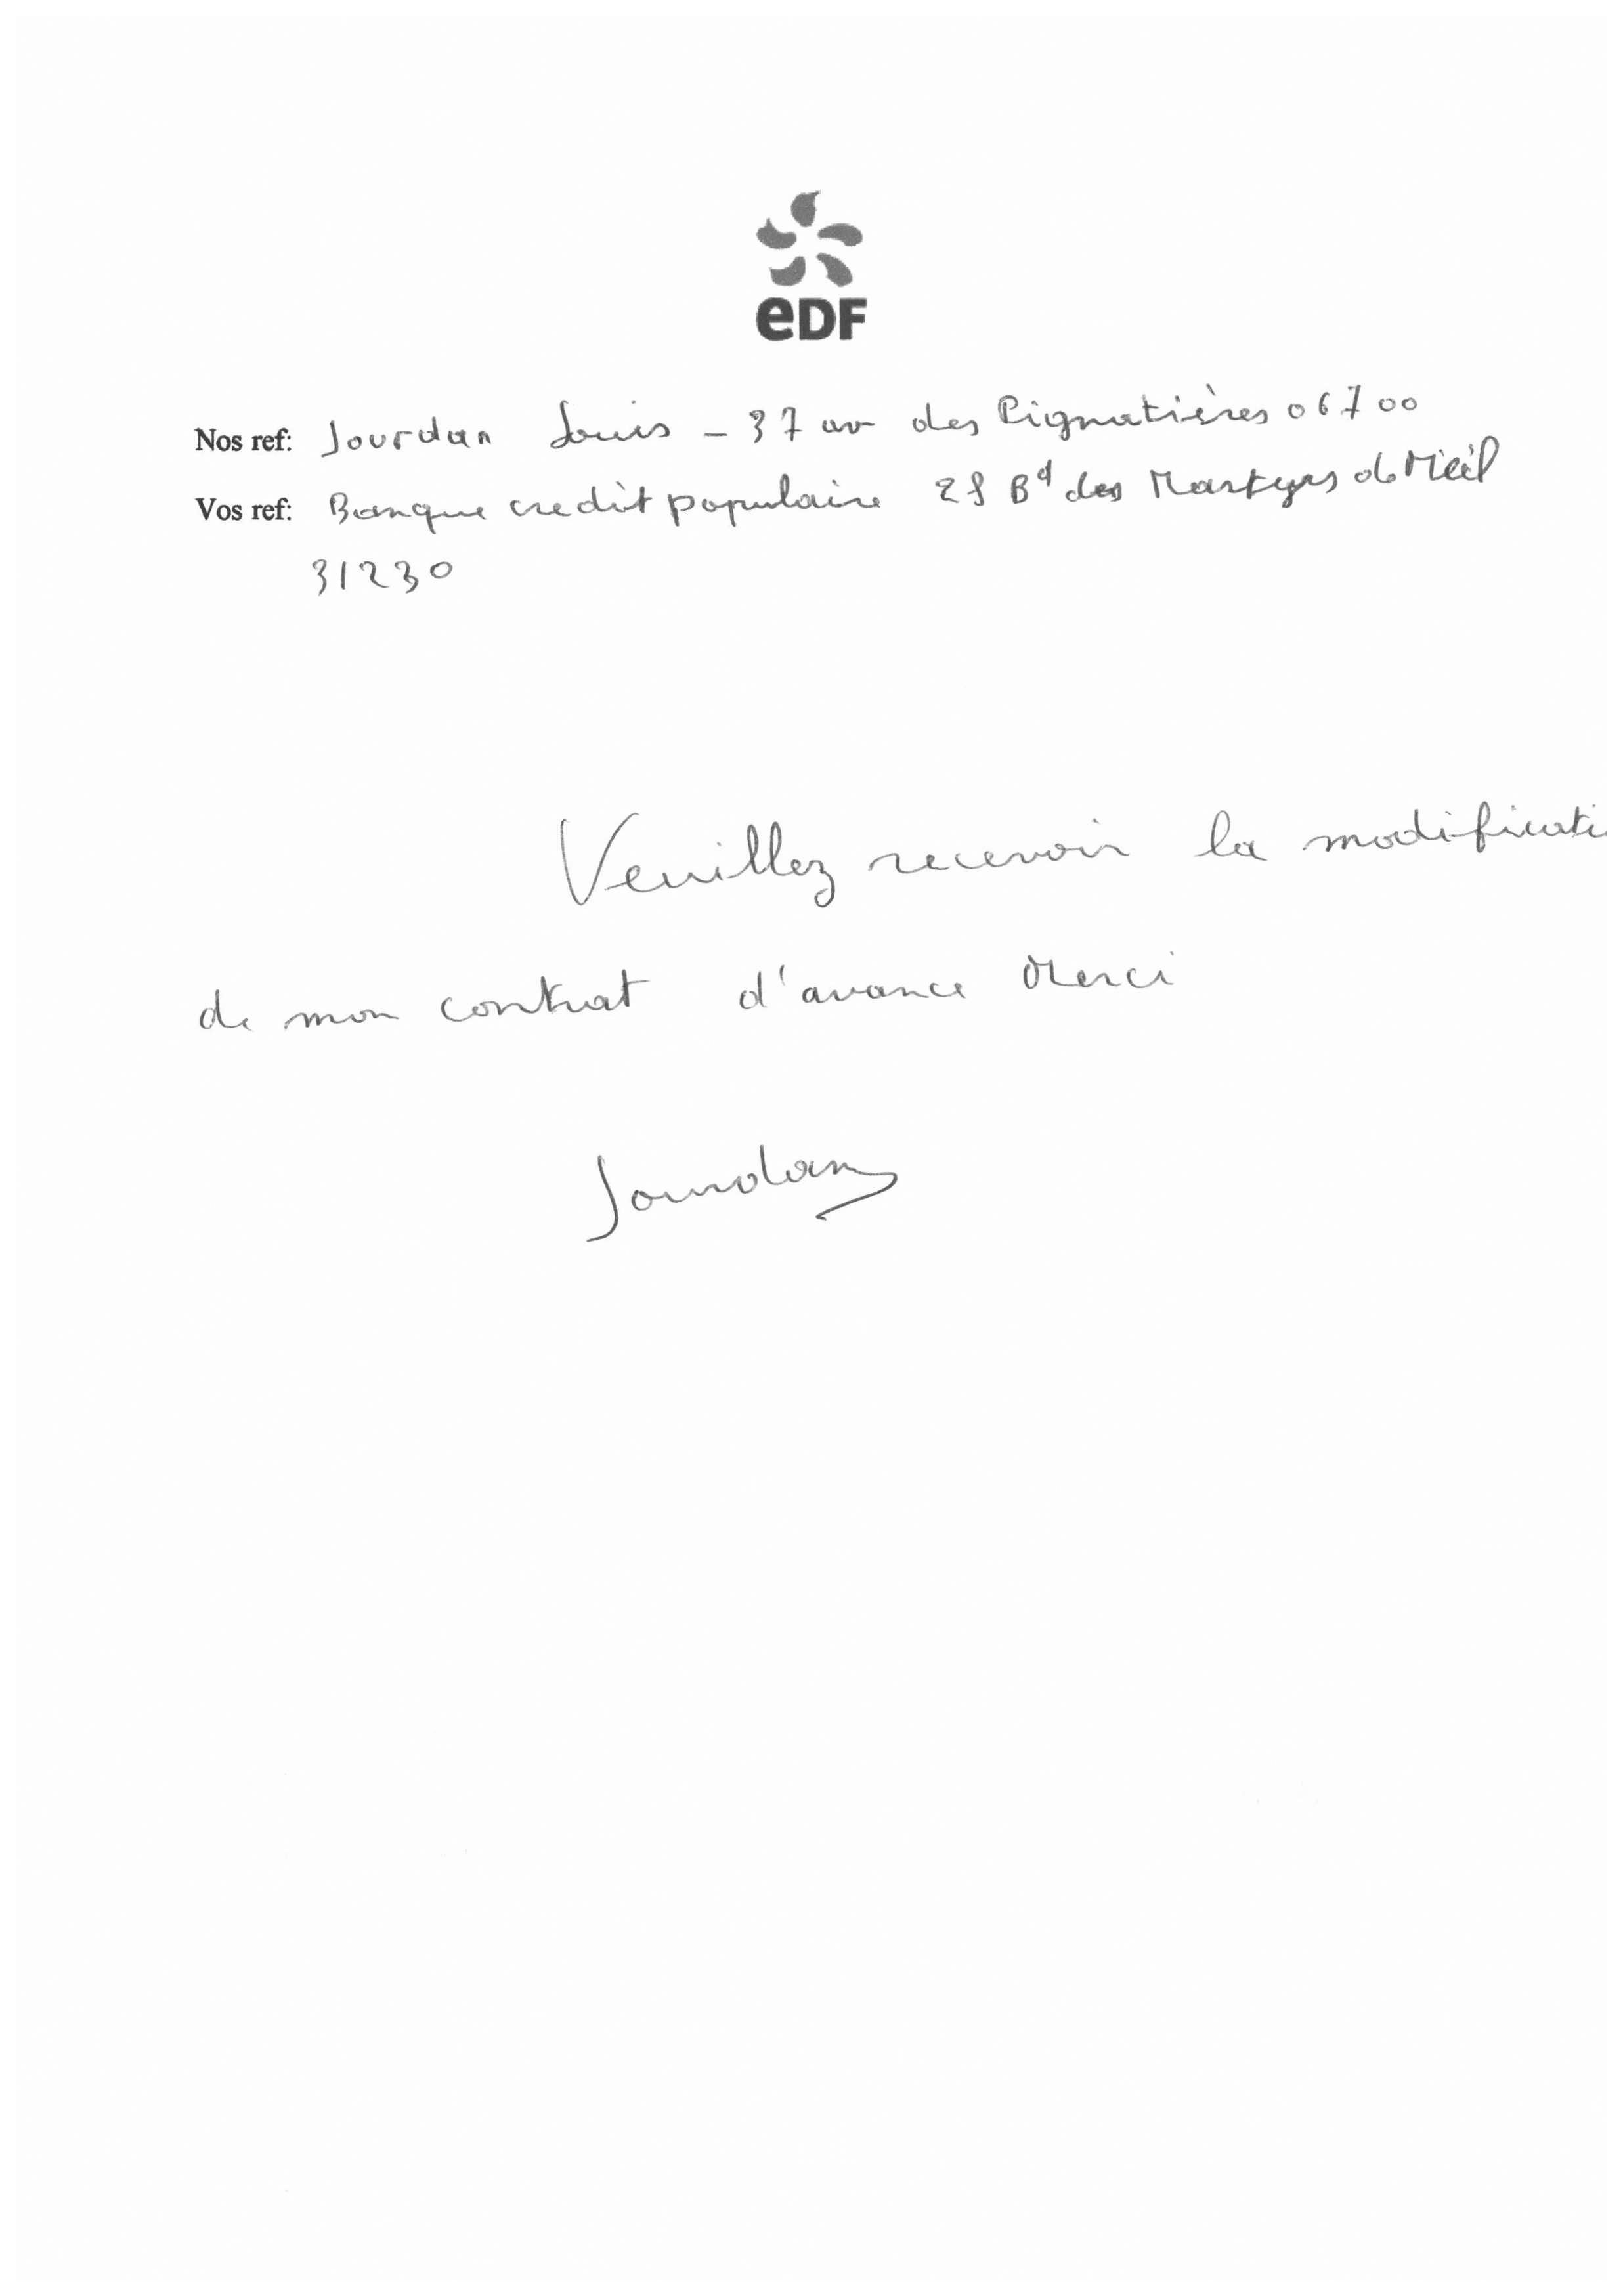 eDF
Nos ref: Jourdan Louis - 37 av des Pignatières 06700
Vos ref: Banque credit populaire 28 Bd des Martyrs de
31230
Veuillez recevoir la modificati
de mon contrat d'avance Merci
Jourdan